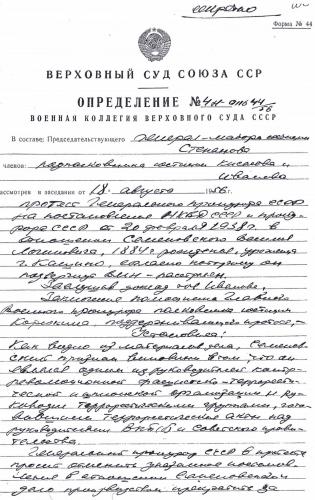 Форма № 44
ВЕРХОВНЫЙ СУД СОЮЗА ССР
ОПРЕДЕЛЕНИЕ №4н-
ВОЕННАЯ КОЛЛЕГИЯ ВЕРХОВНОГО СУДА СССР
В составе: Председательствующего генерал-майора юстиции
Степанова
членов: подполковника юстиции и
рассмотрев в заседании от 18 августа 1956г.
протест Генерального прокурора СССР
на постановление НКВД СССР и проку-
рора СССР от 20 февраля 1938г. в
отношении Семеновского
1884 г рождения, уроженца
г Кашина, согласно которому он
подвергнут ВМН - расстрел.
Заслушав доклад тов Иванова,
Заключение помощника Главного
Военного прокурора полковника юстиции
поддержавшего протест, -
Установила:
Как видно из материалов дела, Семенов-
ский признан виновным в том, что он
являлся одним из руководителей контр-
революционной фашистско-террористи-
ческой и шпионской организации и ру-
ководил террористическими группами, гото-
вившими террористические акты над
руководителями ВКП/б и советского прави-
тельства.
Генеральный прокурор СССР в протесте
просит отменить указанное постанов-
ление в отношении Семеновского и
дело производством прекратить за